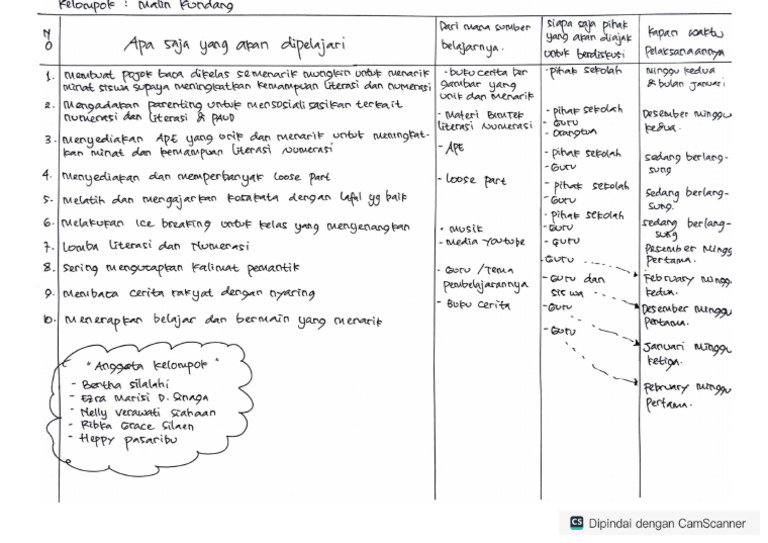 Kelompok : Malin Kundang
NO
Apa saja yang akan dipelajari
Dari mana sumber
belajarnya.
siapa saja pihak
yang akan diajak
untuk berdiskusi
Kapan waktu
Pelaksanaannya
1. Membuat pojok baca dikelas semenarik mungkin untuk menarik
minat siswa supaya meningkatkan kemampuan literasi dan numerasi
2. Mengadakan parenting untuk mensosialisasikan terkait
numerasi dan literasi & PAUD
3. Menyediakan APE yang unik dan menarik untuk meningkat-
kan minat dan kemampuan literasi numerasi
4. Menyediakan dan memperbanyak loose part
5. Melatih dan mengajarkan kosakata dengan lafal yg baik
6. Melakukan Ice breaking untuk kelas yang menyenangkan
7. Lomba literasi dan Numerasi
8. Sering mengucapkan kalimat pemantik
9. Membaca cerita rakyat dengan nyaring
10. Menerapkan belajar dan bermain yang menarik
" Anggota kelompok "
- Bertha silalahi
- Ezra Marisi D. Sinaga
- Nelly verawati siahaan
- Ribka Grace Silaen
- Heppy pasaribu
- buku cerita ber
gambar yang
unik dan menarik
- Materi BIMTEK
literasi Numerasi
- APE
- loose part
- musik
- Media Youtube
- Guru / Tema
pembelajarannya
- Buku cerita
- pihak sekolah
- pihak sekolah
- Guru
- Orangtua
- pihak sekolah
- Guru
- pihak sekolah
- Guru
- pihak sekolah
- Guru
- Guru
- Guru
- Guru dan
siswa
- Guru
- Guru
Minggu kedua
& bulan Januari
Desember minggu
kedua.
sedang berlang-
sung
sedang berlang-
sung.
sedang berlang-
sung
Desember Mingg
Pertama.
February mingg
kedua.
Desember minggu
Pertama.
Januari minggu
ketiga.
February minggu
Pertama.
CS Dipindai dengan CamScanner